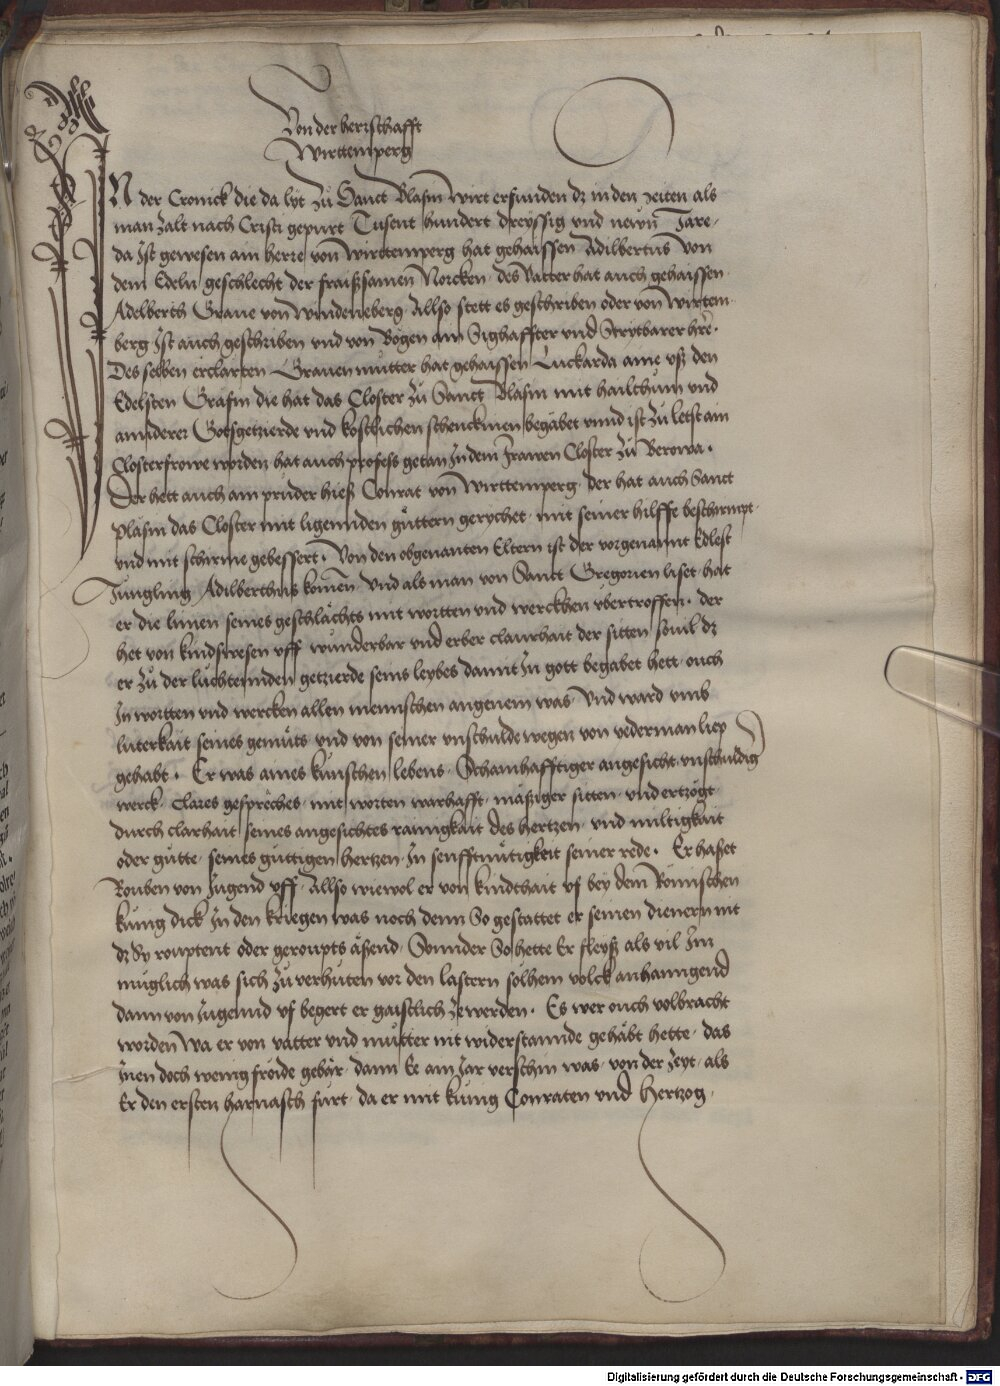 Von der herrschafft
Wirttemperg
IN der Cronick die da lyt zů Sanct Blasin wirt erfunden dz in den zeiten als
man zalt nach Cristi gepurt Tusent hundert dreyssig vnd neün Jare
da Ist gewesen ain herre von wirttemperg hat gehaissen Adilbertus von
dem Edeln geschlecht der fraißsamen Norcken des Vatter hat auch gehaissen
Adelberth Graue von windeneberg Allso stett es geschriben oder von wirtem
berg Ist auch geschriben vnd von Bogen ain Sighaffter vnd Strytbarer hre
Des selben erclarten Grauen můtter hat gehaissen Luckarda aine vß den
Edelsten Gräfin die hat das Closter zů Sanct Blasin mit hailthum vnd
annderer Gotsgetzierde vnd kostlichen schenckinen begabet vnnd ist zů letst ain
Closterfrowe worden hat auch profess getan In dem Frawen Closter zů Berowa
Der hett auch ain průder hieß Conrat von Wirttemperg der hat auch Sanct
Pläsin das Closter mit ligennden gůttern gerychet mit seiner hilffe beschirmpt
vnd mit schirme gebessert Von den obgenanten Eltern ist der vorgenannt Edlest
Jungling Adilberthus komen Vnd als man von Sanct Gregorien liset hat
er die linien seines geschlächts mit wortten vnd werckhen vbertroffen der
het von kindswesen vff wunderbar vnd erber claurhait der sitten souil dz
er zů der lůchtennden getzierde seins leybes damit In gott begabet hett ouch
In wortten vnd wercken allen mennschen angenem was Vnd ward vmb
luterkait seines gemüts vnd von seiner vnschulde wegen von yederman liep
gehabt Er was aines künschen lebens Schamhafftiger angesicht vnschuldig
werck Clares gespräches mit worten warhafft mässiger sitten vnd ertzögt
durch clarhait seines angesichtes rainigkait des hertzen vnd miltigkait
oder gütte seines güttigen hertzen In senfftmütigkeit seiner rede Er haßet
Rouben von Jugend vff Allso wiewol er von kindthait vf bey dem Römischen
kunig dick In den kriegen was noch denn So gestattet er seinen dienern nit
dz Sy rouptent oder geroupts äßend Sonnder So hette Er fleyß als vil Im
muglich was sich zů verhüten vor den lastern solhem volck anhanngend
dann von Jugennd vf begert er gaistlich ze werden Es wer ouch volbracht
worden wa er von vatter vnd můtter nit widerstannde gehäbt hette das
Inen doch wenig fröide gebär dann Ee ain Jar verschin was von der Zeyt als
Er den ersten harnasch fürt da er mit kunig Conraten vnd Hertzog
Digitalisierung gefördert durch die Deutsche Forschungsgemeinschaft - DFG